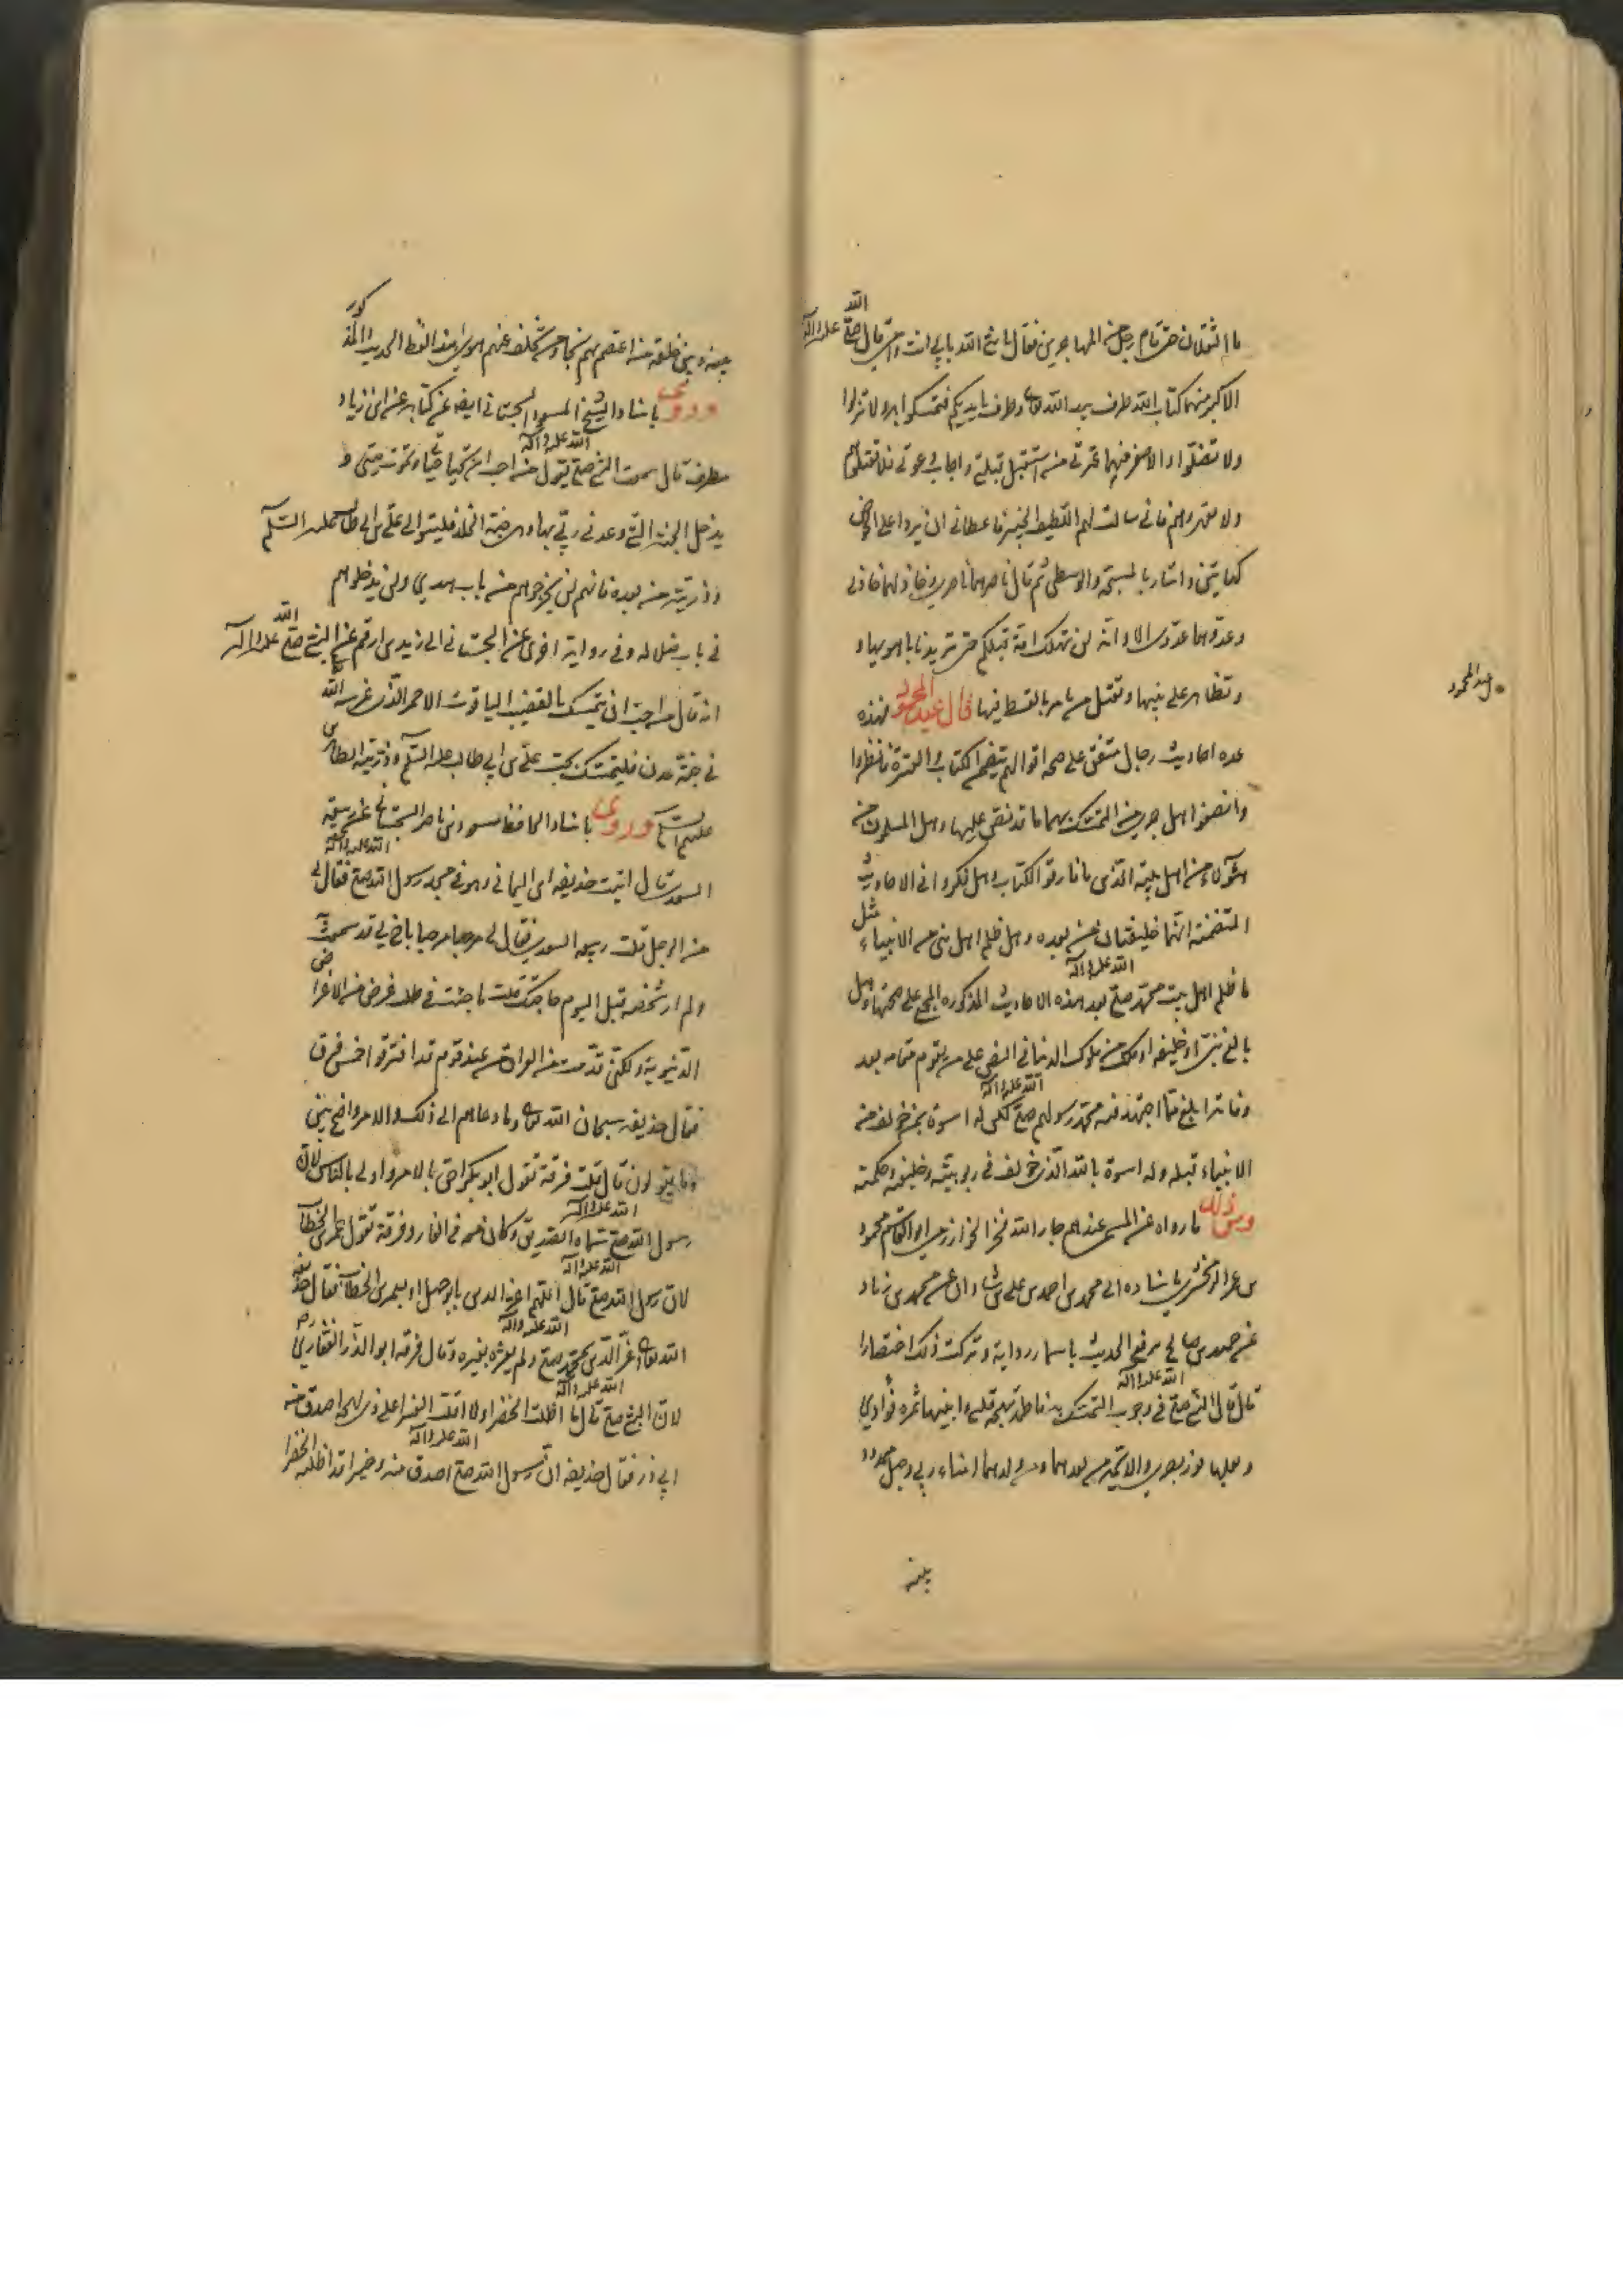 ما الثقلان حتى قام رجل من المهاجرين فقال يا نبي الله بابي انت وامي قال صلى الله عليه وآله
الاكبر منهما كتاب الله طرف بيد الله تعالى وطرف بايديكم فتمسكوا به ولا تزلوا
ولا تضلوا والاصغر فيهما عترتي من استقبل قبلتي واجاب دعوتي فلا تقتلوهم
ولا تقهروهم فاني سالت لهم اللطيف الخبير فاعطاني ان يردا على الحوض
كهاتين واشار بالمسبحة والوسطى ثم قال ناصرهما ناصري وخاذلهما خاذلي
وعدوهما عدوي الا وانه لن تهلك امة قبلكم حتى تدين باهوائها و
وتظاهر على نبيها وتقتل من يامر بالقسط فيها قال عبد المحمود فهذه
عدة احاديث رجال متفق على صحة اقوالهم يتضمن الكتاب والعترة فانظروا
وانصفوا هل جرى من التمسك بهما ما قد نص عليهما وهل المسلمون من
هؤلاء من اهل بيته الذين ما فارقوا الكتاب وهل فكروا في الاحاديث
المتضمنة انهما خليفتان من بعده وهل ظلم اهل نبي من الانبياء مثل
ما ظلم اهل بيت محمد صلى الله عليه وآله بعد هذه الاحاديث المذكورة المجمع على صحتها وهل
بالغ نبي او خليفة او ملك من ملوك الدنيا في النص على من يقوم مقامه بعد
وفاته ابلغ مما اجتهد فيه محمد رسولهم صلى الله عليه وآله لكن له اسوة بمن خولف من
الانبياء قبله وله اسوة بالله الذي خولف في ربوبيته وخليفته وحكمته
ومن ذلك ما رواه عن المسمى عندهم جار الله فخر الخوارزمي ابو القاسم محمود
بن عمر الزمخشري باسناده الى محمد بن احمد بن علي بن شاذان عن محمد بن زياد
عن حميد بن صالح يرفع الحديث باسماء رواته وتركت ذلك اختصارا
قال قال النبي صلى الله عليه وآله في وجوب التمسك به فاطمة بهجة قلبي وابنيها ثمرة فؤادي
وبعلها نور بصري والائمة من بعدهما من ولدهما امناء ربي وحبل ممدود
بينه
عبد المحمود
بينه وبين خلقه من اعتصم بهم نجا ومن تخلف عنهم هوى هذا لفظ الحديث المذكور
وروى باسناد الشيخ المسعود السجستاني ايضا عن كتابه عن ابن زياد
مطرف قال سمعت النبي صلى الله عليه وآله يقول من احب ان يحيا حياتي ويموت ميتتي و
يدخل الجنة التي وعدني ربي بها وهي جنة الخلد فليتوال علي بن ابي طالب عليه السلام
وذريته من بعده فانهم لن يخرجوهم من باب هدى ولن يدخلوهم
في باب ضلالة وفي رواية اخرى عن السجستاني الى زيد بن ارقم عن النبي صلى الله عليه وآله
انه قال من احب ان يتمسك بالقضيب الياقوت الاحمر الذي غرسه الله
في جنة عدن فليتمسك بحب علي بن ابي طالب عليه السلام وذريته الطاهرين
عليهم السلام وروى باسناد الحافظ مسعود بن ناصر السجستاني عن ربيعة
السعدي قال اتيت حذيفة بن اليماني وهو في مسجد رسول الله صلى الله عليه وآله فقال لي
من الرجل قلت ربيعة السعدي فقال لي مرحبا مرحبا باخ لي قد سمعت به
ولم ار شخصه قبل اليوم حاجتك قلت ما جئت في طلب غرض من الاغراض
الدنيوية ولكني قدمت من العراق من عند قوم قد افترقوا خمس فرق
فقال حذيفة سبحان الله تعالى وما دعاهم الى ذلك والامر واضح بين
وما يقولون قال قلت فرقة تقول ابو بكر احق بالامر واولى بالناس لان
رسول الله صلى الله عليه وآله سماه الصديق وكان معه في الغار وفرقة تقول عمر بن الخطاب
لان رسول الله صلى الله عليه وآله قال اللهم اعز الدين بابي جهل او بعمر بن الخطاب فقال حذيفة
الله تعالى اعز الدين بمحمد صلى الله عليه وآله ولم يعزه بغيره وقال فرقة ابو الذر الغفاري ره
لان النبي صلى الله عليه وآله قال ما اظلت الخضراء ولا اقلت الغبراء على ذي لهجة اصدق من
ابي ذر فقال حذيفة ان رسول الله صلى الله عليه وآله اصدق منه وخير وقد اظلته الخضراء